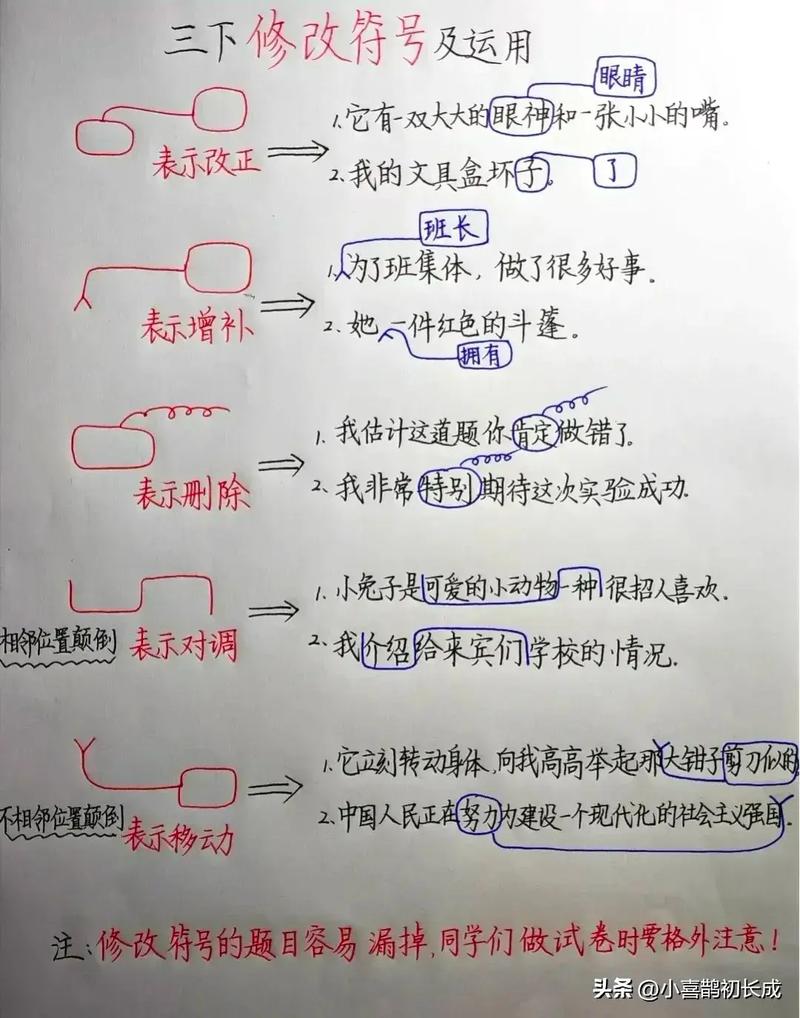 三下修改符号及运用
眼睛
1.它有一双大大的眼神和一张小小的嘴。
表示改正
2.我的文具盒坏子。 了
班长
1.为了班集体，做了很多好事。
表示增补
2.她一件红色的斗蓬。
拥有
1.我估计这道题你肯定做错了。
表示删除
2.我非常特别期待这次实验成功.
1.小兔子是可爱的小动物一种很招人喜欢.
相邻位置颠倒 表示对调
2.我介绍给来宾们学校的情况.
1.它立刻转动身体,向我高高举起那大钳子剪刀似的
不相邻位置颠倒 表示移动
2.中国人民正在努力为建设一个现代化的社会主义强国.
注:修改符号的题目容易漏掉,同学们做试卷时要格外注意!
头条 @小喜鹊初长成